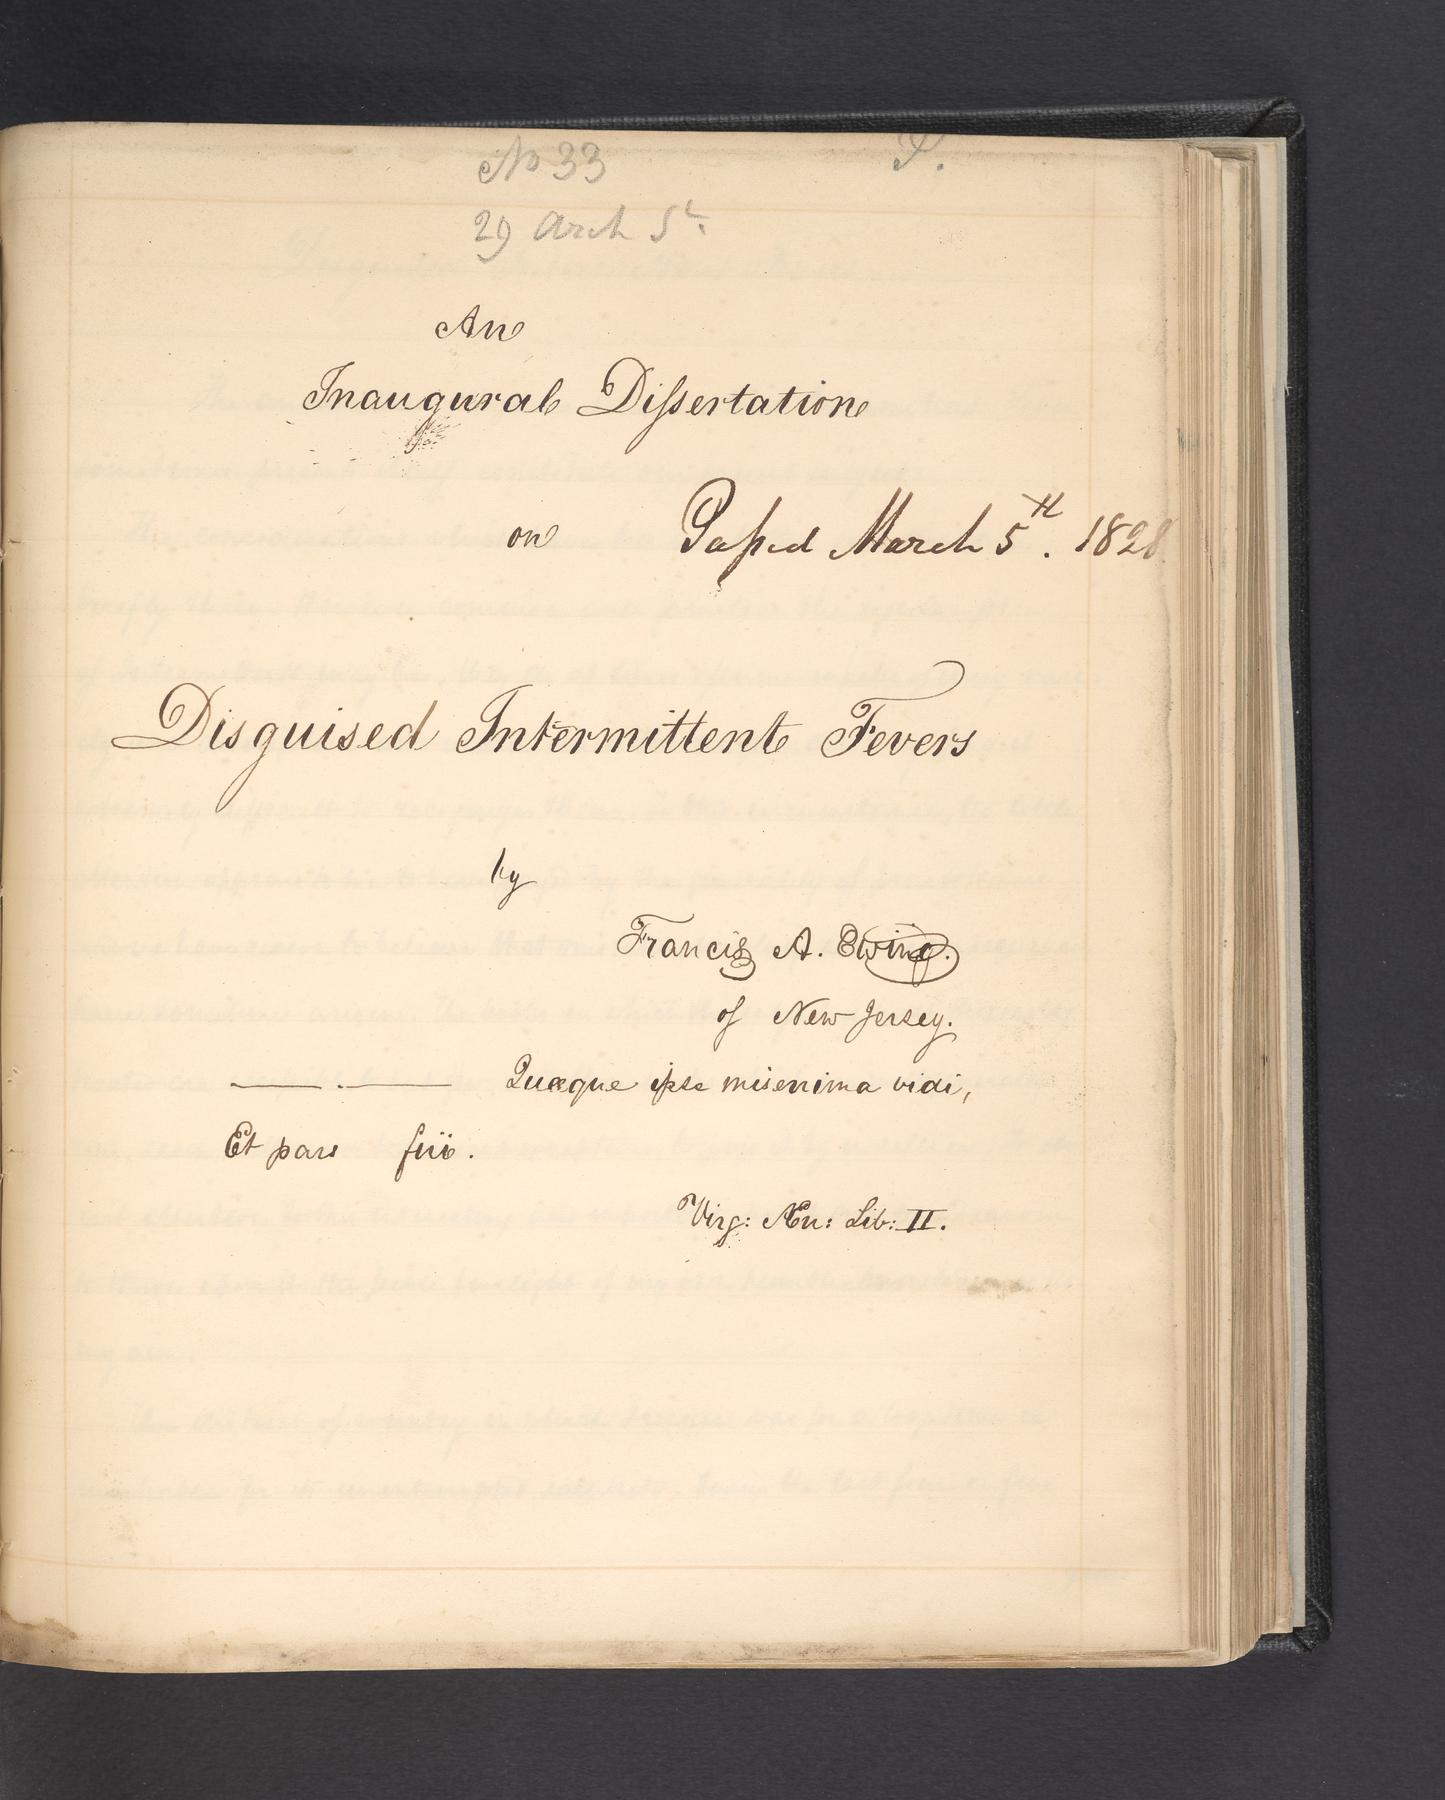 No 33 P.
29 Arch St.
An
Inaugural Dissertation
on Passed March 5th. 1828
Disguised Intermittent Fevers
by
Francis A. Ewing.
of New Jersey.
——.—— Quæque ipse miserrima vidi,
Et pars fui.
Virg: Æn: Lib: II.